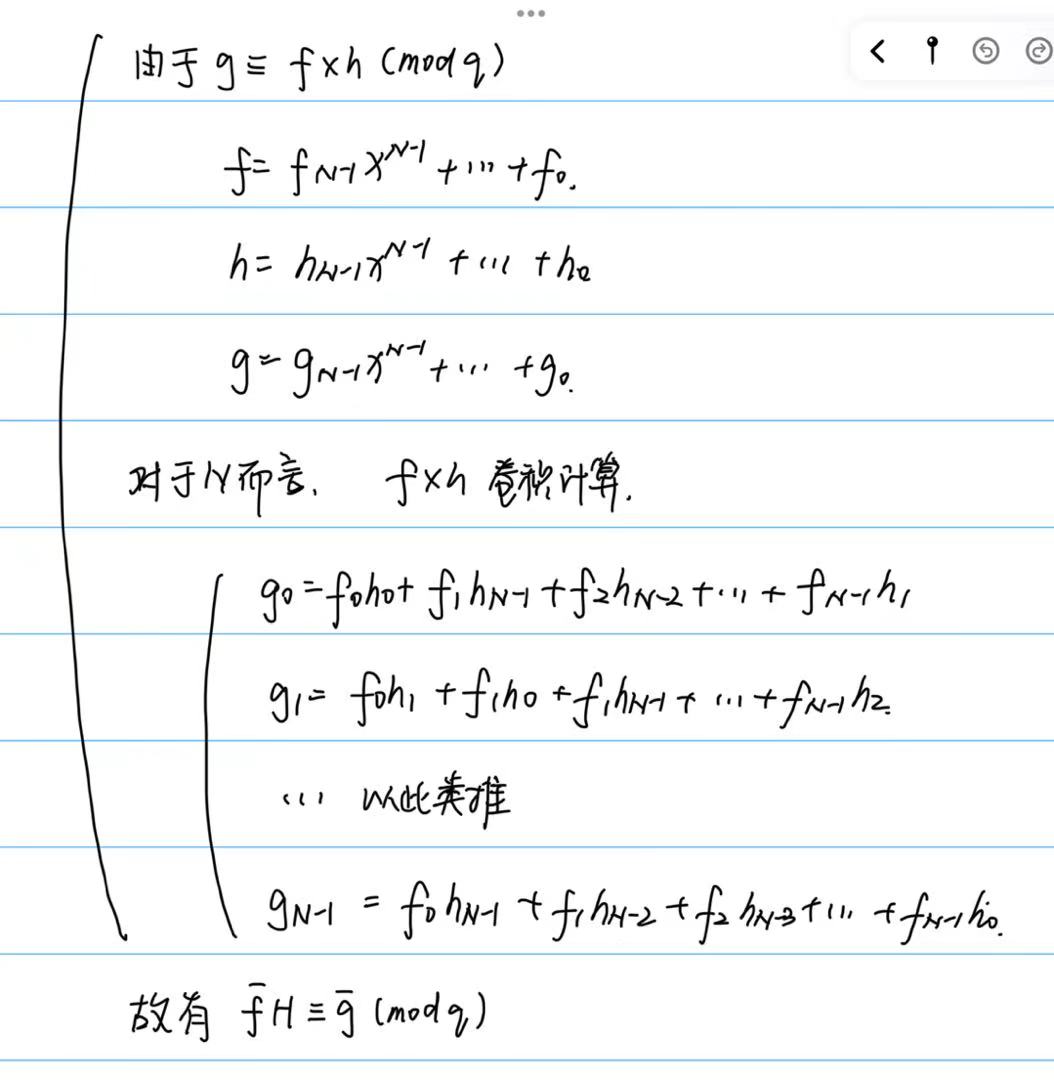 由于 g ≡ f×h (mod q)
f = f_{N-1}x^{N-1} + ... + f_0.
h = h_{N-1}x^{N-1} + ... + h_0
g = g_{N-1}x^{N-1} + ... + g_0.
对于N而言, f×h 卷积计算.
g_0 = f_0h_0 + f_1h_{N-1} + f_2h_{N-2} + ... + f_{N-1}h_1
g_1 = f_0h_1 + f_1h_0 + f_1h_{N-1} + ... + f_{N-1}h_2.
... 以此类推
g_{N-1} = f_0h_{N-1} + f_1h_{N-2} + f_2h_{N-3} + ... + f_{N-1}h_0.
故有 f̄H ≡ ḡ (mod q)